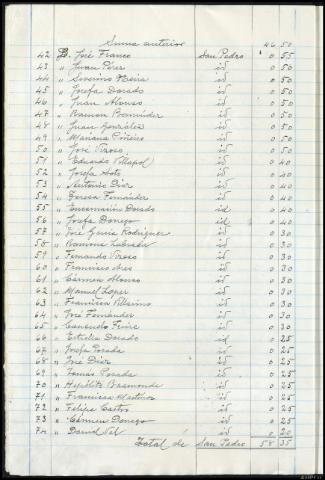 Suma anterior 46 50
42 D. José Franco San Pedro 0 55
43 " Juan Pérez id 0 50
44 " Severino Neira id 0 50
45 " Josefa Dorado id 0 50
46 " Juan Alonso id 0 50
47 " Ramon Bermúdez id 0 50
48 " Juan González id 0 50
49 " Mariana Piñeiro id 0 50
50 " José Raposo id 0 50
51 " Eduardo Villapol id 0 40
52 " Josefa Soto id 0 40
53 " Antonio Díaz id 0 40
54 " Teresa Fernández id 0 40
55 " Encarnación Dorado id 0 40
56 " Josefa Donego id 0 40
57 " José García Rodríguez id 0 30
58 " Ramona Labrada id 0 30
59 " Fernando Raposo id 0 30
60 " Francisco Ares id 0 30
61 " Cármen Alonso id 0 30
62 " Manuel López id 0 30
63 " Francisca Villarino id 0 30
64 " José Fernández id 0 30
65 " Consuelo Freire id 0 30
66 " Etelvina Dorado id 0 25
67 " Josefa Posada id 0 25
68 " José Díaz id 0 25
69 " Tomás Posada id 0 25
70 " Hipólito Baamonde id 0 25
71 " Francisca Martínez id 0 25
72 " Felipe Castro id 0 25
73 " Cármen Donego id 0 25
74 " Daniel Val id 0 20
Total de San Pedro 58 35